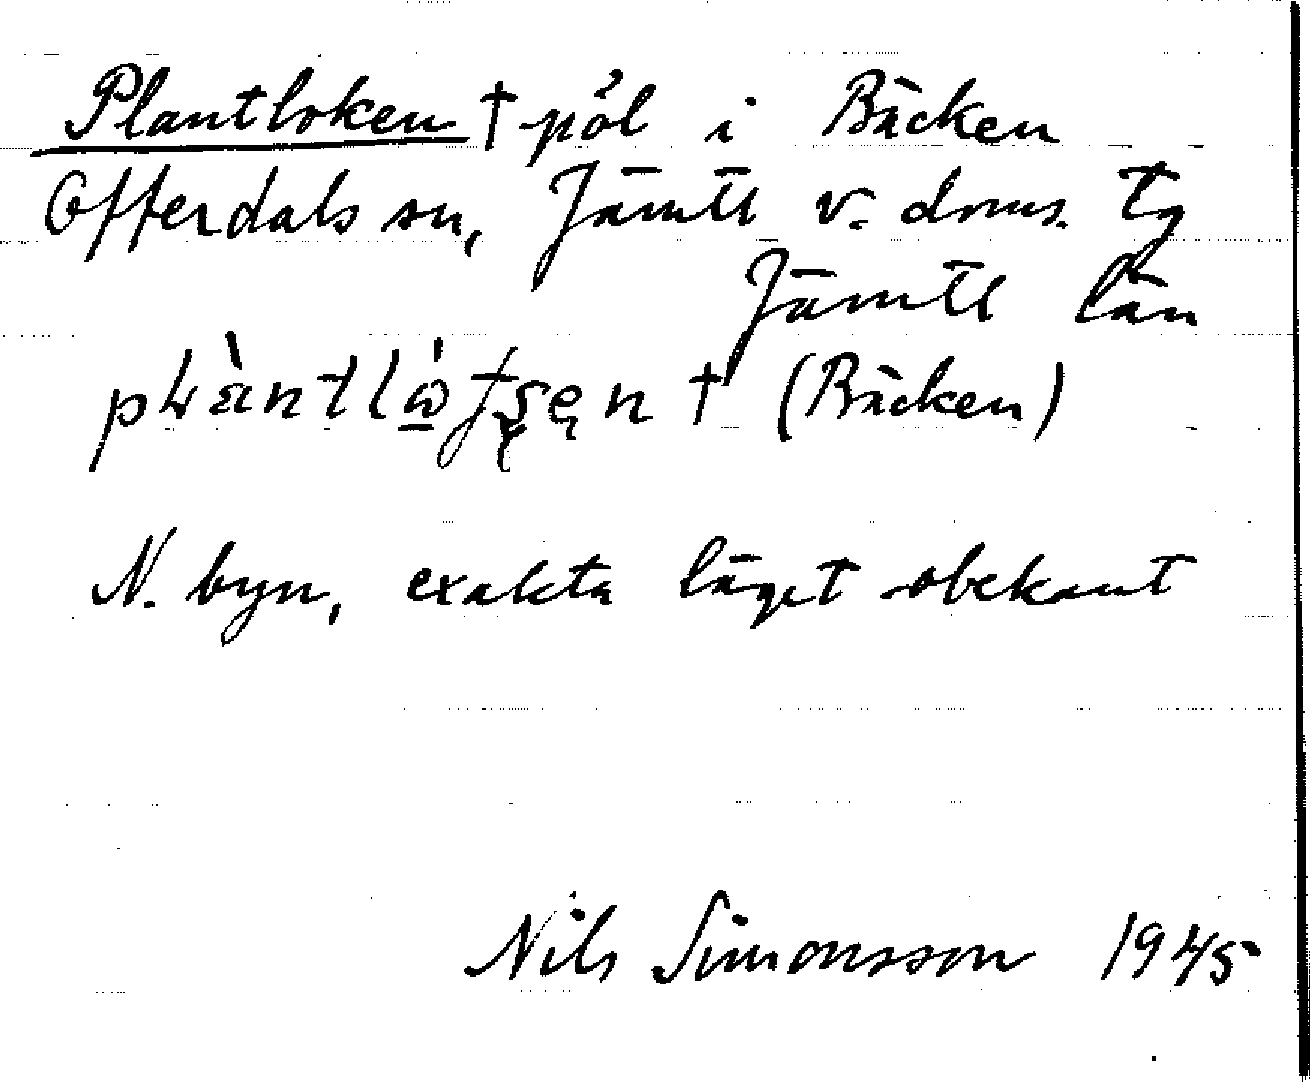 Plantloken † pöl i Bäcken
Offerdals sn, Jämtl v. doms. tg
Jämtl län
† (Bäcken)
N. byn, exakta läget obekant
Nils Simonsson 1945